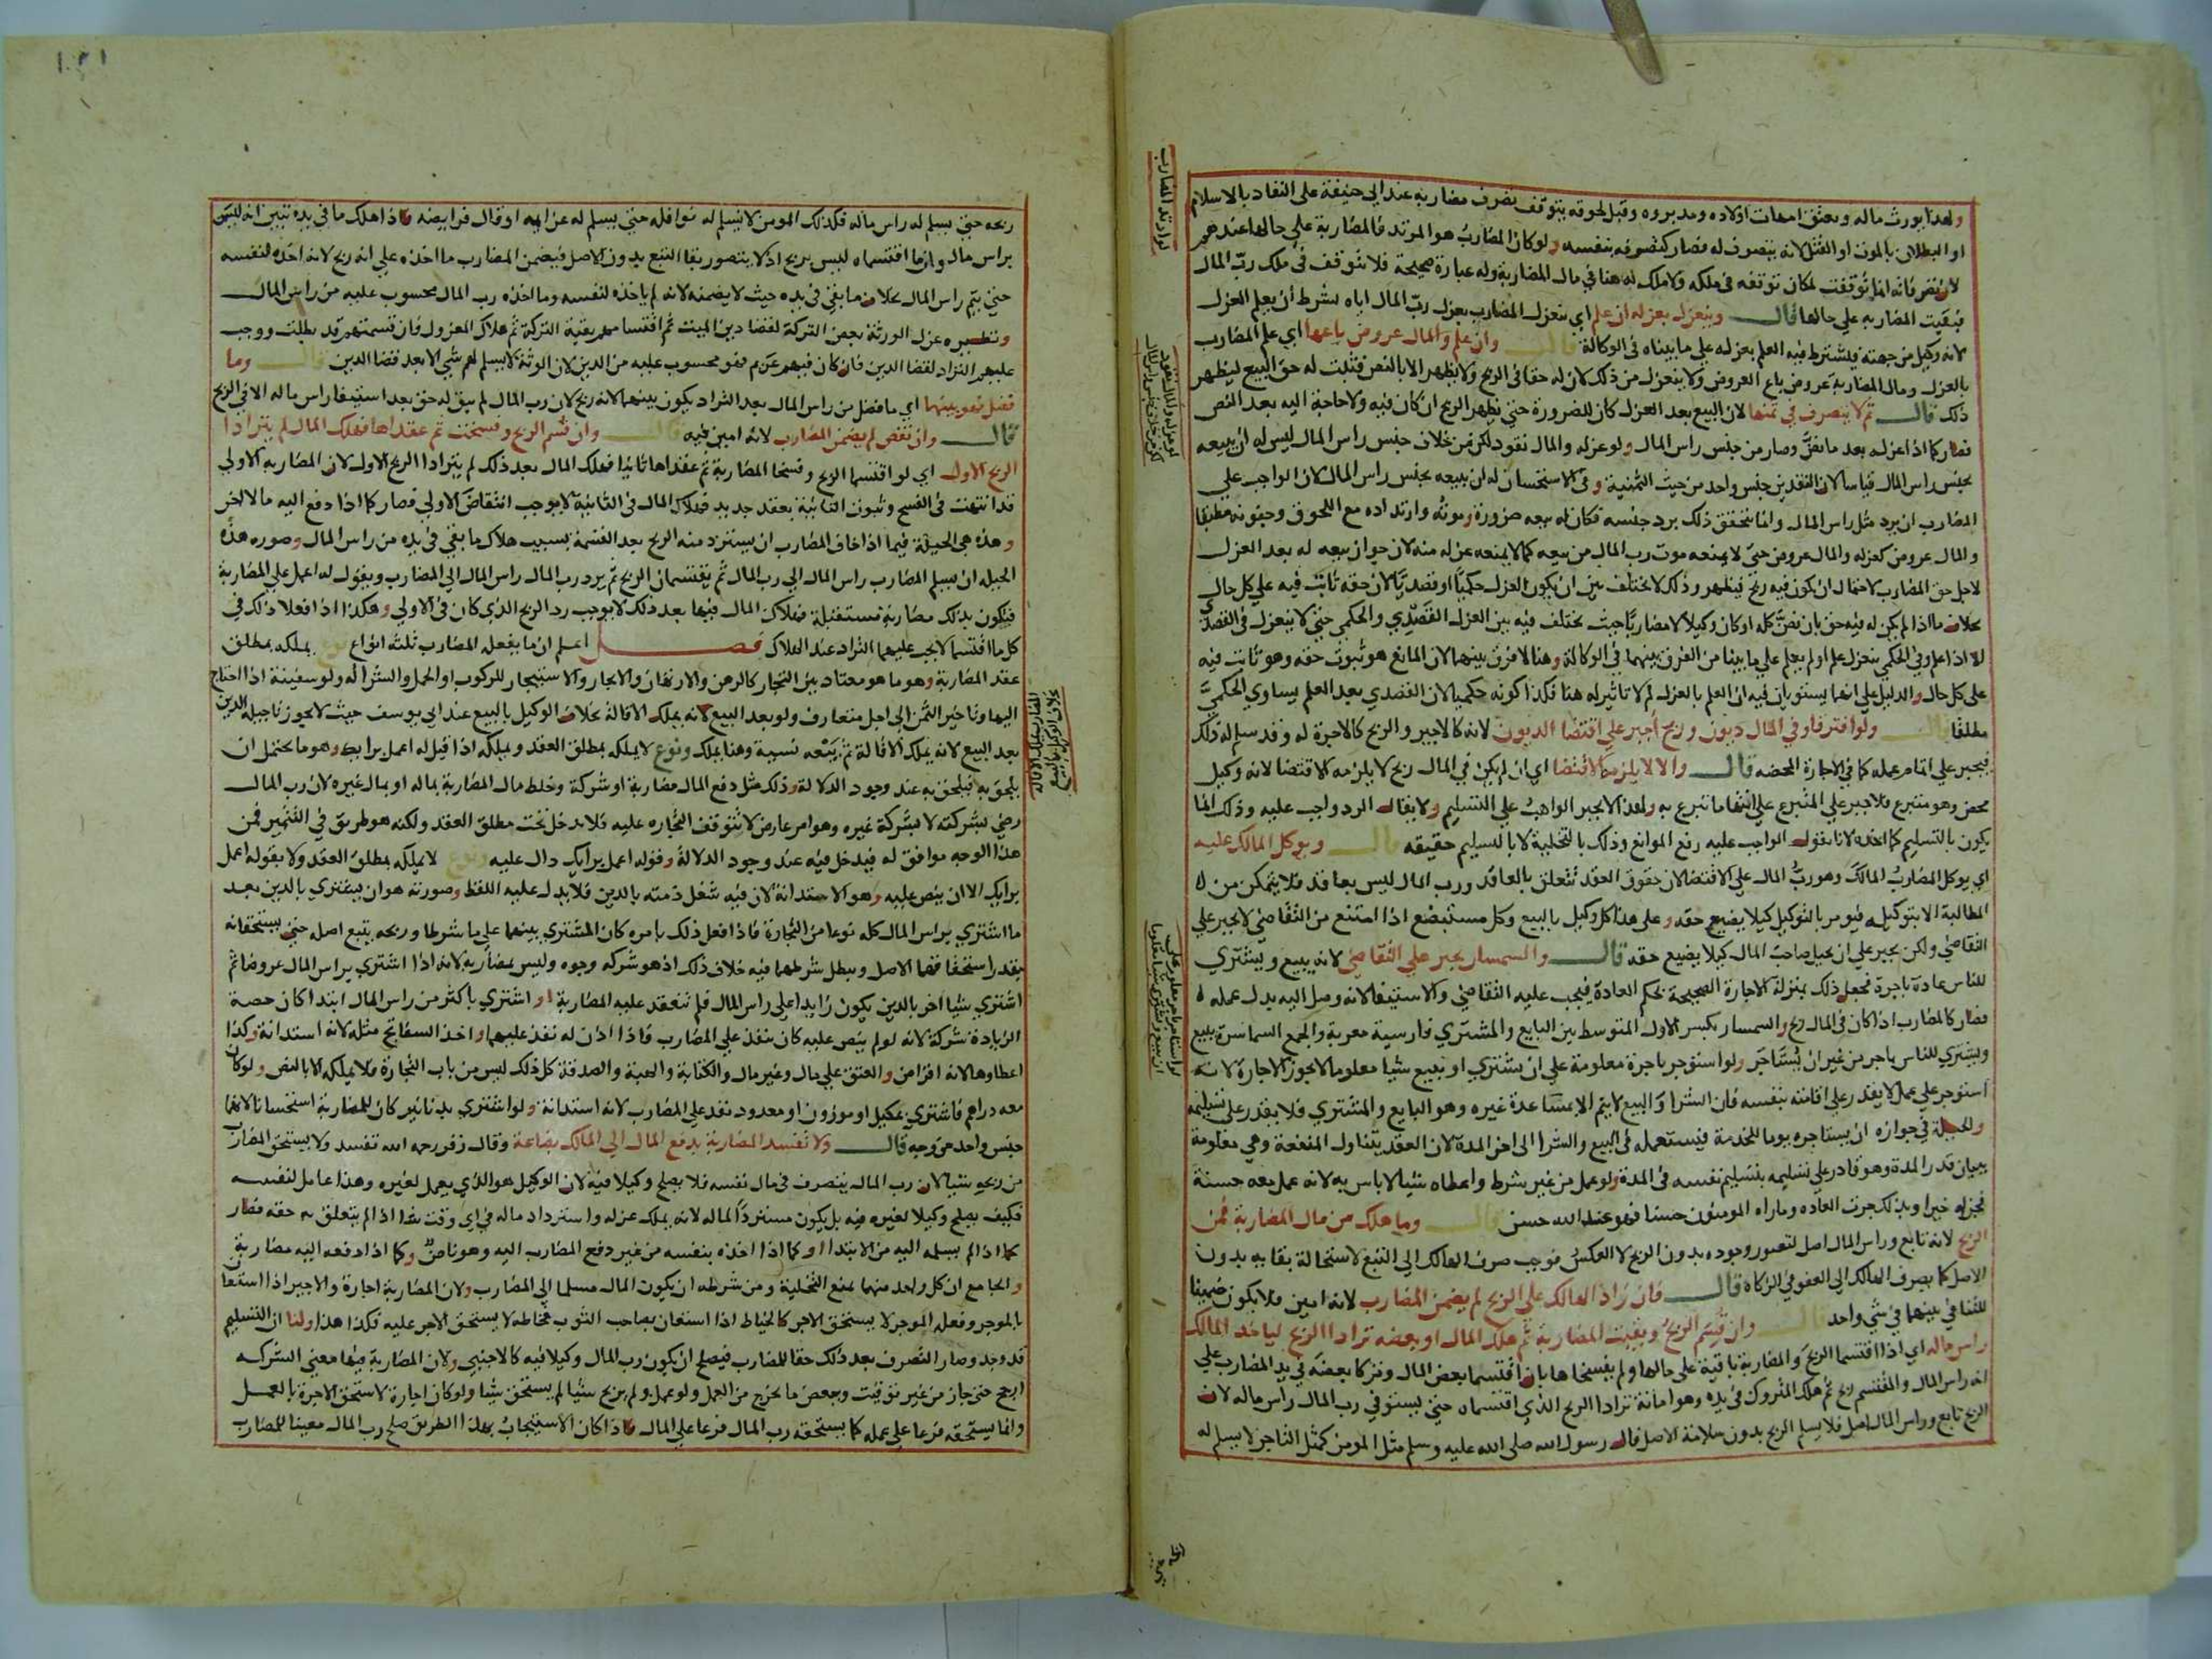 ولهذا يورث ماله ويعتق امهات اولاده ومدبروه وقبل لحوقه يتوقف تصرف مضاربه عند ابي حنيفة على النفاد بالاسلام
او البطلان بالموت او القتل لانه يتصرف له فصار كتصرفه بنفسه ولو كان المضارب هو المرتد فالمضاربة علي حالها عندهم
لان تصرفاته انما توقفت لمكان توقفه في ملكه ولا ملك له هنا في مال المضاربة وله عبارة صحيحة فلا تتوقف في ملك رب المال
فبقيت المضاربه علي حالها قال وينعزل بعزله ان علم اي ينعزل المضارب بعزل رب المال اياه بشرط ان يعلم العزل
لانه وكيل من جهته فيشترط فيه العلم بعزله على ما بيناه في الوكالة قال وان علم والمال عروض باعها اي علم المضارب
بالعزل ومال المضاربة عروض باع العروض ولا ينعزل من ذلك لان له حقا في الربح ولا يظهر الا بالنض فثبت له حق البيع ليظهر
ذلك قال ثم لا يتصرف في ثمنها لان البيع بعد العزل كان للضرورة حتي يظهر الربح ان كان فيه ولا حاجة اليه بعد النض
فصار كما اذا عزله بعد ما نض وصار من جنس راس المال ولو عزله والمال نقود لكن من خلاف جنس راس المال ليس له ان يبيعه
بجنس راس المال قياسا لان النقدين جنس واحد من حيث الثمنية وفي الاستحسان له ان يبيعه بجنس راس المال لان الواجب على
المضارب ان يرد مثل راس المال وانما يتحقق ذلك برد جنسه فكان له بيعه ضرورة وموته وارتداده مع اللحوق وجنونه مطبقا
والمال عروض كعزله والمال عروض حتي لا يمنعه موت رب المال من بيعه كما لا يمنعه عزله منه لان جواز بيعه له بعد العزل
لاجل حق المضارب لاحتمال ان يكون فيه ربح فيظهر وذلك لا يختلف بين ان يكون العزل حكميا او قصديا لان حقه ثابت فيه علي كل حال
بخلاف ما اذا لم يكن له فيه حق بان نض كله او كان وكيلا لا مضاربا حيث يختلف فيه بين العزل القصدي والحكمي حتي لا ينعزل في القصدي
الا اذا علم وفي الحكمي ينعزل علم او لم يعلم علي ما بينا من الفرق بينهما في الوكالة وهنا لا فرق بينهما لان المانع هو ثبوت حقه وهو ثابت فيه
على كل حال والدليل علي انهما يستويان فيه ان العلم بالعزل لا تاثير له هنا فكذا كونه حكميا لان القصدي بعد العلم يساوي الحكمي
مطلقا قال ولو افترقا وفي المال ديون وربح اجبر علي اقتضا الديون لانه كالاجير والربح كالاجرة له وقد سلم له ذلك
فيجبر علي اتمام عمله كما في الاجارة المحضه قال والا لا يلزمه الاقتضا اي ان لم يكن في المال ربح لا يلزمه الاقتضا لانه وكيل
محض وهو متبرع فلا جبر علي المتبرع علي انتها ما تبرع به ولهذا لا يجبر الواهب علي التسليم ولا يقال الرد واجب عليه وذلك انما
يكون بالتسليم كما اخذه لانا نقول الواجب عليه رفع الموانع وذلك بالتخلية لا بالتسليم حقيقه قال ويوكل المالك عليه
اي يوكل المضارب المالك وهو رب المال علي الاقتضا لان حقوق العقد تتعلق بالعاقد ورب المال ليس بعاقد فلا يتمكن من
المطالبة الا بتوكيله فيومر بالتوكيل كيلا يضيع حقه وعلى هذا كل وكيل بالبيع وكل مستبضع اذا امتنع من التقاضي لا يجبر علي
التقاضي ولكن يجبر علي ان يحيل صاحب المال كيلا يضيع حقه قال والسمسار يجبر علي التقاضي لانه يبيع ويشتري
للناس عادة باجرة فجعل ذلك بمنزلة الاجارة الصحيحة بحكم العادة فيجب عليه التقاضي والاستيفا لانه وصل اليه بدل عمله
فصار كالمضارب اذا كان في المال ربح والسمسار بكسر الاول المتوسط بين البايع والمشتري فارسية معربة والجمع السماسرة يبيع
ويشتري للناس باجر من غير ان يستاجر ولو استوجر باجرة معلومة علي ان يشتري او يبيع شيا معلوما لا يجوز الاجارة لانه
استوجر علي عمل لا يقدر على اقامته بنفسه فان الشرا والبيع لا يتم الا بمساعدة غيره وهو البايع والمشتري فلا يقدر على تسليمه
والحيلة في جوازه ان يستاجره يوما للخدمة فيستعمله في البيع والشرا الى اخر المدة لان العقد يتناول المنفعة وهي معلومة
ببيان قدر المدة وهو قادر علي تسليمه بتسليم نفسه في المدة ولو عمل من غير شرط واعطاه شيا لا باس به لانه عمل معه حسنة
فجزاه خيرا وبذلك جرت العاده وما راه المومنون حسنا فهو عند الله حسن قال وما هلك من مال المضاربة فمن
الربح لانه تابع وراس المال اصل لتصور وجوده بدون الربح لا العكس فوجب صرف الهالك الي التبع لاستحالة بقايه بدون
الاصل كما يصرف الهالك الي العفو في الزكاة قال فان زاد الهالك علي الربح لم يضمن المضارب لانه امين فلا يكون ضمينا
للتنافي بينهما في شي واحد قال وان قسم الربح وبقيت المضاربة ثم هلك المال او بعضه ترادا الربح لياخذ المالك
راس ماله اي اذا اقتسما الربح والمضاربة باقية على حالها ولم يفسخاها بان اقتسما بعض المال وتركا بعضه في يد المضارب علي
انه راس المال والمقتسم ربح ثم هلك المتروك في يده وهو امانة ترادا الربح الذي اقتسماه حتي يستوفي رب المال راس ماله لان
الربح تابع وراس المال اصل فلا يسلم الربح بدون سلامة الاصل قال رسول الله صلى الله عليه وسلم مثل المومن كمثل التاجر لا يسلم له
لو ارتد المضارب
لو استاجر باجر معلوم علي
ان يبيع ويشتري شيا معلوما
ربحه حتي يسلم له راس ماله فكذلك المومن لا يسلم له نوافله حتي يسلم له عزايمه او قال فرايضه فاذا هلك ما في يده تبين انه ليس
براس مال وان ما اقتسماه ليس بربح اذ لا يتصور بقا التبع بدون الاصل فيضمن المضارب ما اخذه علي انه ربح لانه اخذه لنفسه
حتي يتم راس المال بخلاف ما بقي في يده حيث لا يضمنه لانه لم ياخذه لنفسه وما اخذه رب المال محسوب عليه من راس المال
ونظيره عزل الورثة بعض التركة لقضا دين الميت ثم اقتسامهم بقية التركة ثم هلاك المعزول فان قسمتهم قد بطلت ووجب
عليهم التراد لقضا الدين فان كان فيهم غريم فهو محسوب عليه من الدين لان الورثة لا يسلم لهم شي الا بعد قضا الدين قال وما
فضل فهو بينهما اي ما فضل من راس المال بعد التراد يكون بينهما لانه ربح لان رب المال لم يبق له حق بعد استيفا راس ماله الا في الربح
قال وان نقص لم يضمن المضارب لانه امين فيه قال وان قسم الربح وفسخت ثم عقداها فهلك المال لم يترادا
الربح الاول اي لو اقتسما الربح وفسخا المضاربة ثم عقداها ثانيا فهلك المال بعد ذلك لم يترادا الربح الاول لان المضاربة الاولي
قد انتهت في الفسخ وثبوت الثانية بعقد جديد فهلاك المال في الثانية لا يوجب انتقاض الاولي فصار كما اذا دفع اليه مالا اخر
وهذه هي الحيلة فيما اذا خاف المضارب ان يسترد منه الربح بعد القسمة بسبب هلاك ما بقي في يده من راس المال وصوره هذه
الحيله ان يسلم المضارب راس المال الي رب المال ثم يقتسمان الربح ثم يرد رب المال راس المال الي المضارب ويقول له اعمل علي المضاربة
فيكون بذلك مضاربة مستقبلة فهلاك المال فيها بعد ذلك لا يوجب رد الربح الذي كان في الاولي وهكذا اذا فعلا ذلك في
كل ما اقتسما لا يجب عليهما التراد عند الهلاك فصل اعلم ان ما يفعله المضارب ثلثة انواع نوع يملكه بمطلق
عقد المضاربة وهو ما هو معتاد بين التجار كالرهن والارتهان والايجار والاستيجار للركوب او الحمل والشرا له ولو سفينة اذا احتاج
اليها وتاخير الثمن الي اجل متعارف ولو بعد البيع لانه يملك الاقالة بخلاف الوكيل بالبيع عند ابي يوسف حيث لا يجوز تاجيله الدين
بعد البيع لانه يملك الاقالة ثم يبيعه نسيية وهنا يملك ونوع لا يملكه بمطلق العقد ويملكه اذا قيل له اعمل برايك وهو ما يحتمل ان
يلحق به فيلحق به عند وجود الدلالة وذلك مثل دفع المال مضاربة او شركة وخلط مال المضاربة بماله او بمال غيره لان رب المال
رضي بشركته لا بشركة غيره وهو امر عارض لا تتوقف التجاره عليه فلا يدخل تحت مطلق العقد ولكنه هو طريق في التثمير فمن
هذا الوجه موافق له فيدخل فيه عند وجود الدلالة وقوله اعمل برايك دال عليه ونوع لا يملكه بمطلق العقد ولا بقوله اعمل
برايك الا ان ينص عليه وهو الاستدانة لان فيه شغل ذمته بالدين فلا بد له عليه اللفظ وصورته هو ان يشتري بالدين بعد
ما اشتري براس المال كله نوعا من التجارة فاذا فعل ذلك بامره كان المشتري بينهما على ما شرطا وربحه يتبع اصله حتي يستحقانه
بقدر استحقاقهما الاصل ويبطل شرطهما فيه خلاف ذلك اذ هو شركه وجوه وليس بمضاربة لانه اذا اشتري براس المال عروضا ثم
اشتري شيا اخر بالدين يكون زايدا علي راس المال فلم تنعقد عليه المضاربة او اشتري باكثر من راس المال ابتدا كان حصة
الزيادة شركة لانه لو لم ينص عليه كان نفذ علي المضارب فاذا اذن له نفذ عليهما واخذ السفاتج مثله لانه استدانة وكذا
اعطاوها لانه اقراض والعتق علي مال وغير مال والكتابة والهبة والصدقة كل ذلك ليس من باب التجارة فلا يملكه الا بالنص ولو كان
معه دراهم فاشتري بمكيل او موزون او معدود نفذ علي المضارب لانه استدانة ولو اشتري بدنانير كان للمضاربة استحسانا لانهما
جنس واحد من وجه قال ولا تفسد المضاربة بدفع المال الي المالك بضاعة وقال زفر رحمه الله تفسد ولا يستحق المضارب
من ربحه شيا لان رب المال يتصرف في مال نفسه فلا يصلح وكيلا فيه لان الوكيل هو الذي يعمل لغيره وهذا عامل لنفسه
فكيف يصلح وكيلا لغيره فيه بل يكون مستردا لماله لانه يملك عزله واسترداد ماله في اي وقت شا اذا لم يتعلق به حقه فصار
كما اذا لم يسلمه اليه من الابتدا او كما اذا اخذه بنفسه من غير دفع المضارب اليه وهو ناض وكما اذا دفعه اليه مضاربة
والجامع ان كل واحد منهما يمنع التخلية ومن شرطه ان يكون المال مسلما الي المضارب ولان المضاربة اجارة والاجير اذا استعان
بالموجر وفعله الموجر لا يستحق الاجر كالخياط اذا استعان بصاحب الثوب فخاطه لا يستحق الاجر عليه فكذا هذا ولنا ان التسليم
قد وجد وصار التصرف بعد ذلك حقا للمضارب فيصلح ان يكون رب المال وكيلا فيه كالاجنبي ولان المضاربة فيها معني الشركه
ارجح حتي جاز من غير توقيت وببعض ما يخرج من العمل ولو عمل ولم يربح شيا لم يستحق شيا ولو كان اجارة لاستحق الاجرة بالعمل
وانما يستحقه فرعا علي عمله كما يستحقه رب المال فرعا علي المال فاذا كان الاستيجاب بهذا الطريق صلح رب المال معينا للمضارب
المضارب يملك الاقاله
بخلاف الوكيل بالبيع